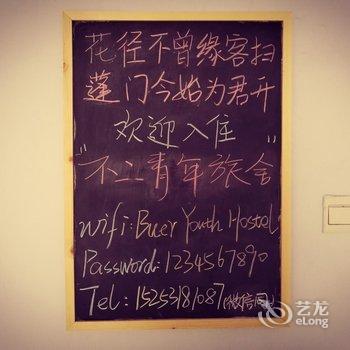 花径不曾缘客扫
蓬门今始为君开
欢迎入住
"不二青年旅舍"
Wifi: Buer Youth Hostel
Password: 1234567890
Tel: 15253181087(微信同
艺龙
eLong